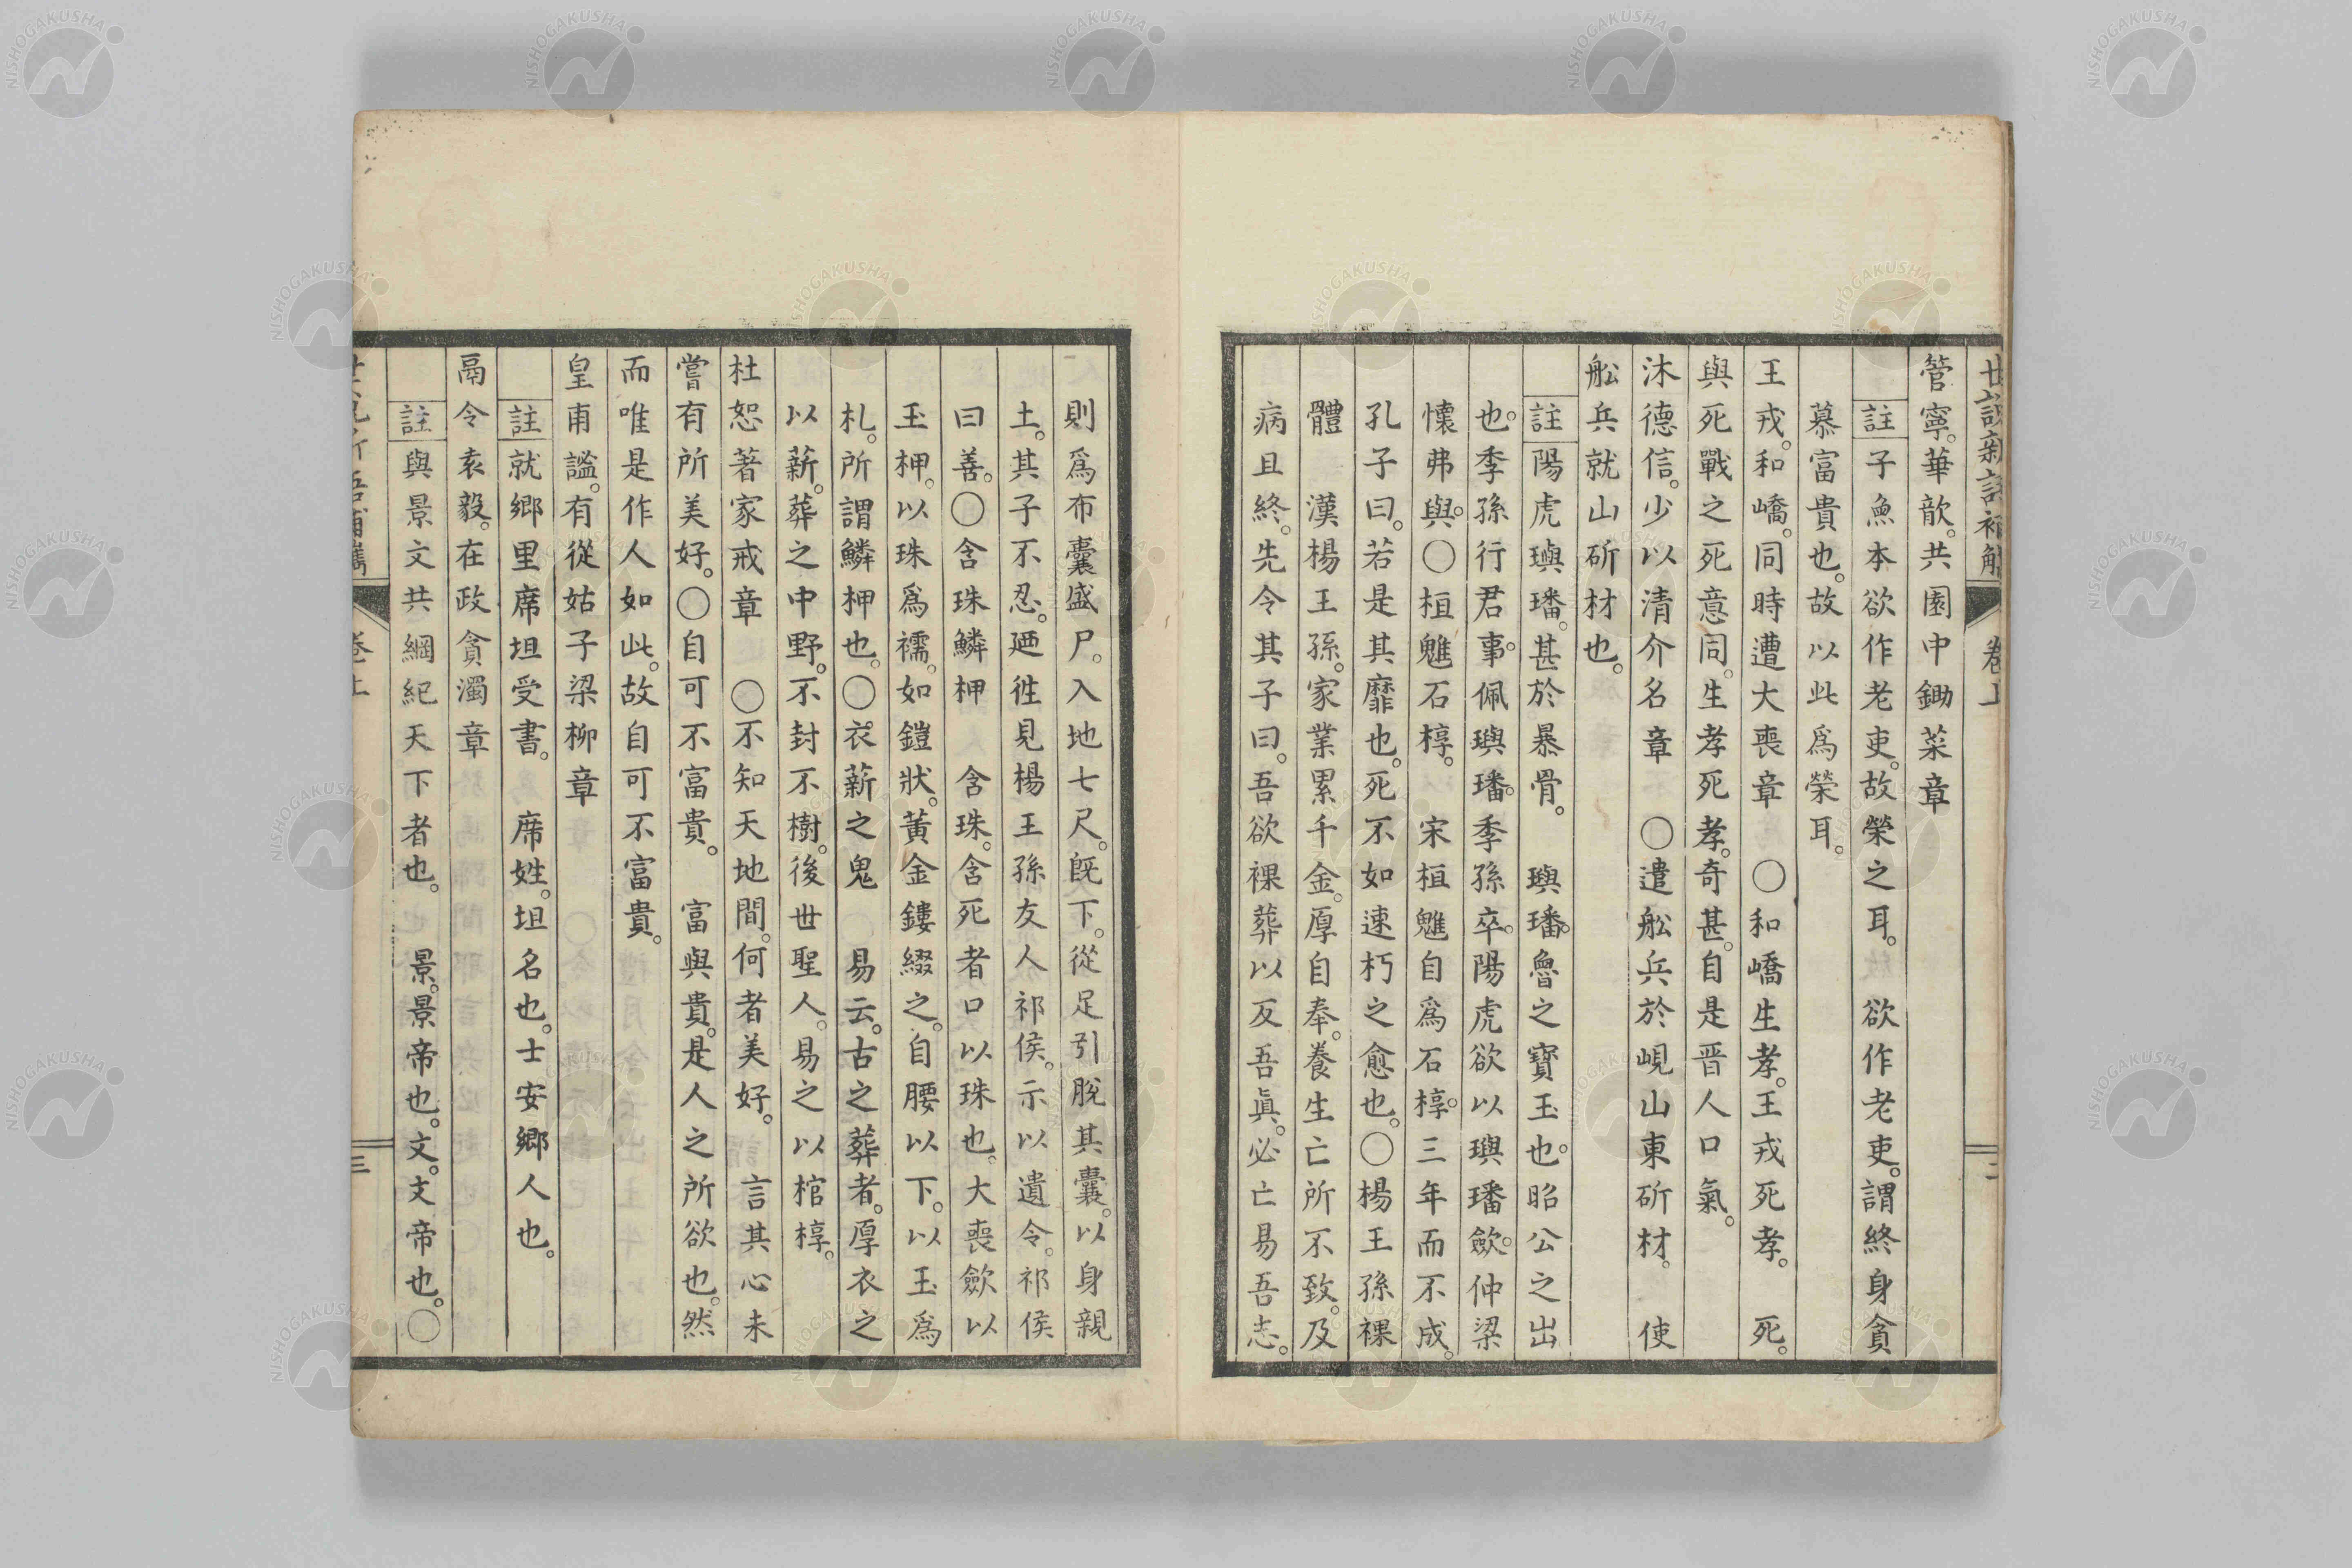 世說新語補觿
卷上
二
管寧。華歆。共園中鋤菜章
註子魚本欲作老吏。故榮之耳。　欲作老吏。謂終身貪
慕富貴也。故以此爲榮耳。
王戎。和嶠。同時遭大喪章　○和嶠生孝。王戎死孝。　死。
與死戰之死意同。生孝死孝。奇甚。自是晋人口氣。
沐德信。少以清介名章　○遣舩兵於峴山東斫材。　使
舩兵就山斫材也。
註陽虎璵璠。甚於暴骨。　璵璠。魯之寳玉也。昭公之出
也。季孫行君事。佩璵璠。季孫卒。陽虎欲以璵璠歛。仲梁
懷弗與。○桓魋石椁。　宋桓魋自爲石椁。三年而不成。
孔子曰。若是其靡也。死不如速朽之愈也。○楊王孫裸
體　漢楊王孫。家業累千金。厚自奉。養生亡所不致。及
病且終。先令其子曰。吾欲裸葬以反吾眞。必亡易吾志。
則爲布囊盛尸。入地七尺。旣下。從足引脫其囊。以身親
土。其子不忍。廼徃見楊王孫友人祁侯。示以遺令。祁侯
曰善。○含珠鱗柙　含珠。含死者口以珠也。大喪歛以
玉柙。以珠爲襦。如鎧狀。黃金鏤綴之。自腰以下。以玉爲
札。所謂鱗柙也。○衣薪之鬼　易云。古之葬者。厚衣之
以薪。葬之中野。不封不樹。後世聖人。易之以棺椁。
杜恕著家戒章　○不知天地間。何者美好。　言其心未
嘗有所美好。○自可不富貴。　富與貴。是人之所欲也。然
而唯是作人如此。故自可不富貴。
皇甫謐。有從姑子梁柳章
註就鄉里席坦受書。　席姓。坦名也。士安鄉人也。
鬲令袁毅。在政貪濁章
註與景文共綱紀天下者也。　景。景帝也。文。文帝也。○
卷上
三